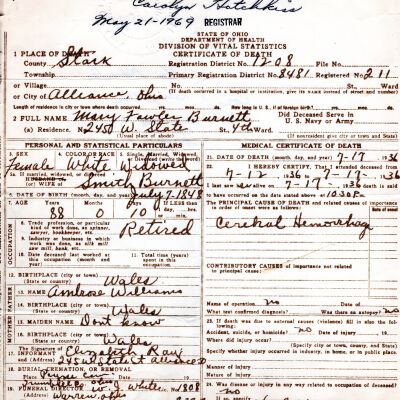 Carolyn Hitchkiss
May 21-1969 REGISTRAR
STATE OF OHIO
DEPARTMENT OF HEALTH
DIVISION OF VITAL STATISTICS
CERTIFICATE OF DEATH
1 PLACE OF DEATH
County Stark Registration District No. 1208 File No.
Township Primary Registration District No. 8481 Registered No. 211
or Village No. St., Ward
or City of Alliance, Ohio (If death occurred in a hospital or institution, give its NAME instead of street and number)
Length of residence in city or town where death occurred yrs. mos. ds. How long in U. S., if of foreign birth? yrs. mos. ds.
2 FULL NAME Mary Fowler Burnett Did Deceased Serve in U. S. Navy or Army
(a) Residence. No. 2450 W. State St., 4th Ward.
(Usual place of abode) (If nonresident give city or town and State)
PERSONAL AND STATISTICAL PARTICULARS
3. SEX 4. COLOR OR RACE 5. Single, Married, Widowed, or Divorced (write the word)
Female White Widowed
5a. If married, widowed, or divorced
HUSBAND of
(or) WIFE of Smith Burnett
6. DATE OF BIRTH (month, day, and year) July 7, 1848
7. AGE Years Months Days If LESS than
88 0 10
8. Trade, profession, or particular kind of work done, as spinner, sawyer, bookkeeper, etc. Retired
9. Industry or business in which work was done, as silk mill, saw mill, bank, etc.
10. Date deceased last worked at this occupation (month and year)
11. Total time (years) spent in this occupation
OCCUPATION
12. BIRTHPLACE (city or town)
(State or country) Wales
FATHER
13. NAME Ambrose Williams
14. BIRTHPLACE (city or town)
(State or country) Wales
MOTHER
15. MAIDEN NAME Dont Know
16. BIRTHPLACE (city or town)
(State or country) Wales
The Signature of
17. INFORMANT Elizabeth Ray
and (Address) 2450 W State St alliance O
18. BURIAL, CREMATION, OR REMOVAL
19. FUNERAL DIRECTOR W. J. White 808
(Address) Warren, ohio
MEDICAL CERTIFICATE OF DEATH
21. DATE OF DEATH (month, day, and year) 7-17 1936
22. I HEREBY CERTIFY, That I attended deceased from
7-12 1936 to 7-17 1936
I last saw alive on 7-17 1936 death is said
to have occurred on the date stated above at 1030 P m.
The PRINCIPAL CAUSE OF DEATH and related causes of importance in order of onset were as follows:
Date of onset
Cerebral Hemorrhage
CONTRIBUTORY CAUSES of importance not related to principal cause:
Name of operation no Date of
What test confirmed diagnosis? Was there an autopsy? no
23. If death was due to external causes (violence) fill in also the following:
Accident, suicide, or homicide? no Date of injury
Where did injury occur?
(Specify city or town, county, and State)
Specify whether injury occurred in industry, in home, or in public place.
Manner of injury
Nature of injury
24. Was disease or injury in any way related to occupation of deceased? no
If so, specify
(Signed)